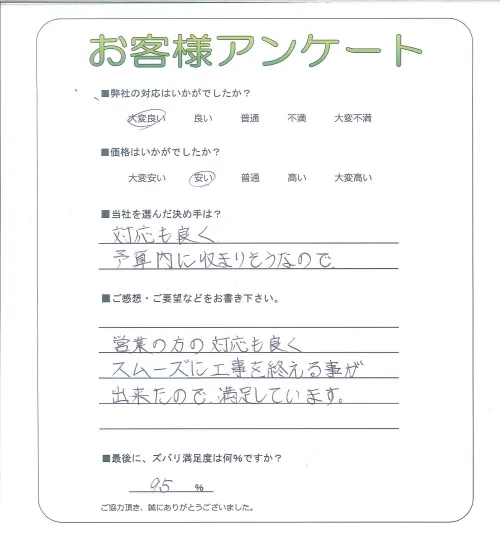 お客様アンケート
■弊社の対応はいかがでしたか？
大変良い 良い 普通 不満 大変不満
■価格はいかがでしたか？
大変安い 安い 普通 高い 大変高い
■当社を選んだ決め手は？
対応も良く
予算内に収まりそうなので.
■ご感想・ご要望などをお書き下さい。
営業の方の対応も良く
スムーズに工事を終える事が
出来たので.満足しています。
■最後に、ズバリ満足度は何％ですか？
95 ％
ご協力頂き、誠にありがとうございました。